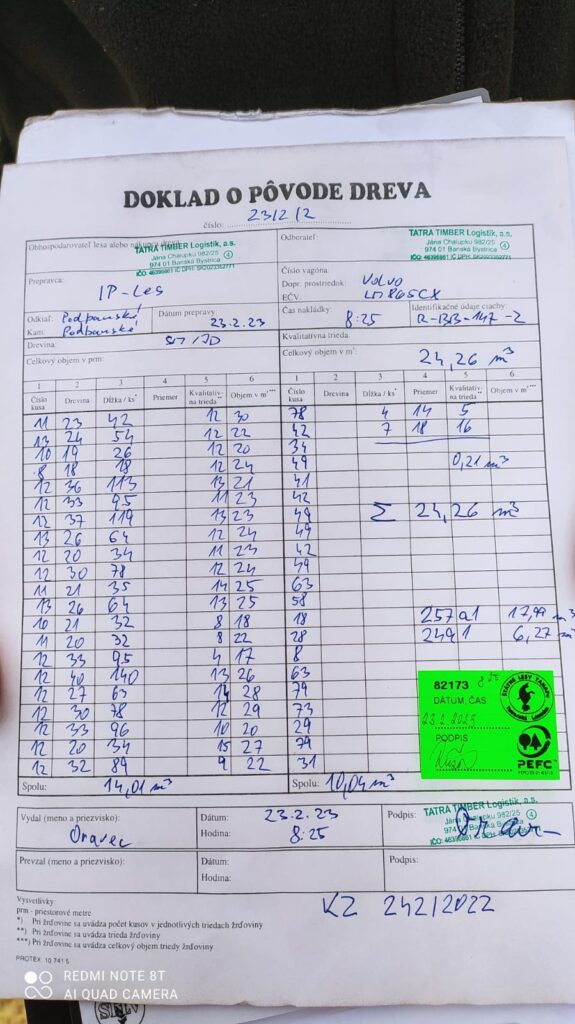 DOKLAD O PÔVODE DREVA
číslo: 23/2/2
Obhospodarovateľ lesa alebo
TATRA TIMBER Logistik, a.s.
Jána Chalupku 982/25
974 01 Banská Bystrica
Odberateľ:
TATRA TIMBER Logistik, a.s.
Jána Chalupku 982/25
974 01 Banská Bystrica
Prepravca:
IP-Les
Číslo vagóna:
Dopr. prostriedok: Volvo
EČV. LM865CX
Odkiaľ: Podbanské
Kam: Podbanské
Dátum prepravy
23.2.23
Čas nakládky
8:25
Identifikačné údaje ciachy:
R-BB-147-2
Drevina: SM/JD
Kvalitatívna trieda:
Celkový objem v prm:
Celkový objem v m³: 24,26 m³
1 2 3 4 5 6 1 2 3 4 5 6
Číslo kusa Drevina Dĺžka / ks* Priemer Kvalitatívna trieda** Objem v m³*** Číslo kusa Drevina Dĺžka / ks* Priemer Kvalitatívna trieda** Objem v m³***
11 23 42 12 30 78 4 14 5
13 24 54 12 22 42 7 18 16
10 19 26 12 20 34
8 18 18 12 24 49 0,21 m³
12 36 113 13 21 41
12 33 95 11 23 42
12 37 119 13 23 49 Σ 24,26 m³
13 26 64 12 24 49
12 20 34 11 23 42
12 30 78 12 24 49
11 21 35 14 25 63
13 26 64 13 25 58
10 21 32 8 18 18 257a1 17,99 m³
11 20 32 8 22 28 249 1 6,27 m³
12 33 95 4 17 8
12 40 140 13 26 63
12 27 63 14 28 79
12 30 78 12 29 73
12 33 96 10 20 29
12 20 34 15 27 79
12 32 89 9 22 31
82173 8 25
DÁTUM, ČAS
23.2.2023
PODPIS
ŠTÁTNE LESY TANAPu
Tatranská Lomnica
PEFC
Spolu: 14,01 m³
Spolu: 10,04 m³
Vydal (meno a priezvisko):
Oravec
Dátum: 23.2.23
Hodina: 8:25
Podpis:
TATRA TIMBER Logistik, a.s.
Jána Chalupku 982/25
Prevzal (meno a priezvisko):
Dátum:
Hodina:
Podpis:
KZ 242/2022
Vysvetlivky:
prm - priestorové metre
*) Pri žrďovine sa uvádza počet kusov v jednotlivých triedach žrďoviny
**) Pri žrďovine sa uvádza trieda žrďoviny
***) Pri žrďovine sa uvádza celkový objem triedy žrďoviny
PROTEX 10 741 5
REDMI NOTE 8T
AI QUAD CAMERA